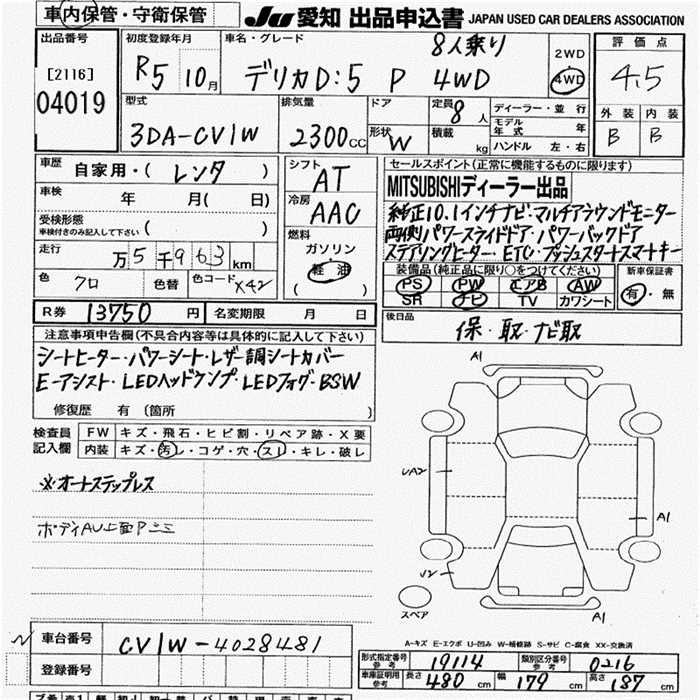 車内保管・守衛保管
JU 愛知 出品申込書 JAPAN USED CAR DEALERS ASSOCIATION
出品番号
[2116]
04019
初度登録年月
R5 10月
車名・グレード
デリカD:5 P 4WD 8人乗り
2WD
4WD
評価点
4.5
外装 内装
B B
型式
3DA-CV1W
排気量
2300cc
ドア
形状 W
定員 8人
積載 kg
ディーラー・並行
モデル年式 年
ハンドル 左・右
車歴 自家用・(レンタ)
車検 年 月( 日)
受検形態
車検付きのみ記入して下さい ( )
走行
万5千963km
色 クロ 色替 色コード X42
シフト
AT
冷房
AAC
燃料
ガソリン
軽油
( )
セールスポイント(正常に機能するものに限ります)
MITSUBISHIディーラー出品
純正10.1インチナビ・マルチアラウンドモニター
両側パワースライドドア・パワーバックドア
ステアリングヒーター・ETC・プッシュスタートスマートキー
装備品(純正品に限り○をつけてください)
PS PW エアB AW
SR ナビ TV カワシート
新車保証書
有・無
R券 13750円 名変期限 月 日
後日品
保・取・ナビ取
注意事項申告欄(不具合内容等は具体的に記入して下さい)
シートヒーター・パワーシート・レザー調シートカバー
E-アシスト・LEDヘッドランプ・LEDフォグ・BSW
修復歴 有 (箇所 )
検査員記入欄
FW キズ・飛石・ヒビ割・リペア跡・X要
内装 キズ・汚レ・コゲ・穴・スレ・キレ・破レ
※オートステップレス
ボディAU上面Pニミ
A1
UA2
A1
U2
A1
スペア
A-キズ E-エクボ U-凹み W-補修跡 S-サビ C-腐食 XX-交換済
車台番号 CV1W-4028481
登録番号
形式指定番号 参考 19114
類別区分番号 参考 0216
車庫証明用 参考 長さ 480cm 幅 179cm 高さ 187cm